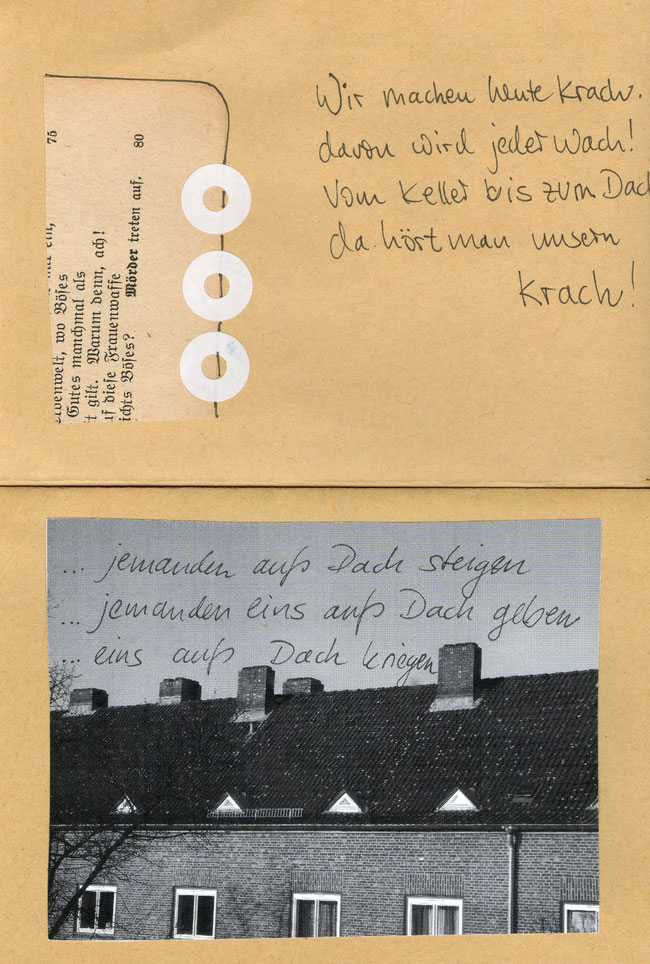 ein, 75
rdenwelt, wo Böſes
Gutes manchmal als
ft gilt. Warum denn, ach!
uf dieſe Frauenwaffe
ichts Böſes? Mörder treten auf. 80
Wir machen heute Krach.
davon wird jeder wach!
Vom Keller bis zum Dach
da hört man unsern
Krach!
... jemanden aufs Dach steigen
... jemanden eins aufs Dach geben
... eins aufs Dach kriegen